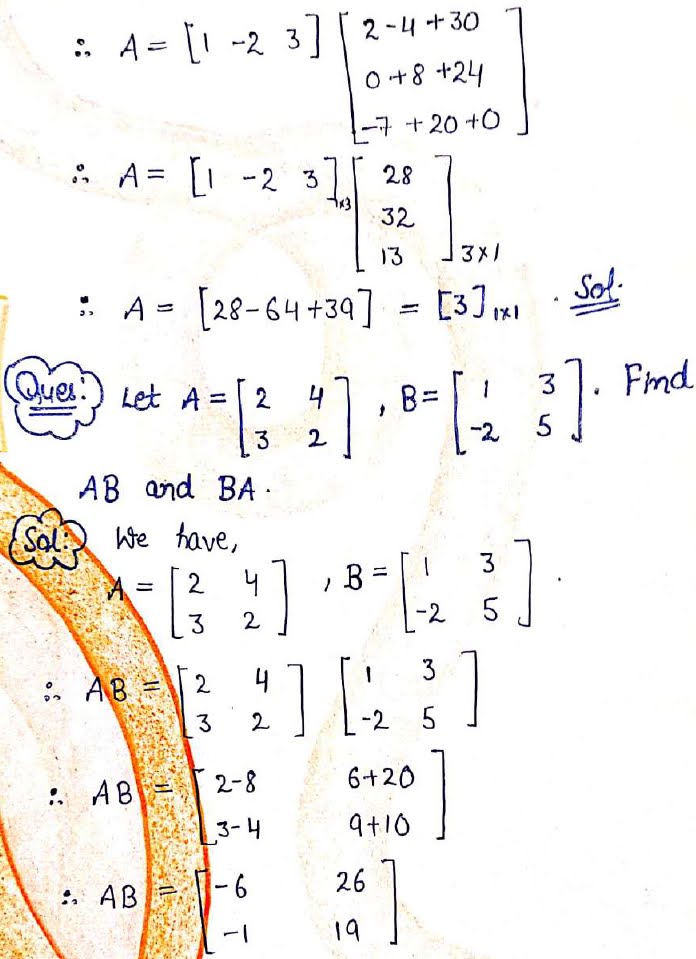 ∴ A = [1 -2 3] [2-4+30
0+8+24
-7+20+0]
∴ A = [1 -2 3]1×3 [28
32
13]3×1
∴ A = [28-64+39] = [3]1×1 . Sol.
Ques: Let A = [2 4
3 2], B = [1 3
-2 5]. Find
AB and BA.
Sol: We have,
A = [2 4
3 2], B = [1 3
-2 5].
∴ AB = [2 4
3 2] [1 3
-2 5]
∴ AB = [2-8 6+20
3-4 9+10]
∴ AB = [-6 26
-1 19]